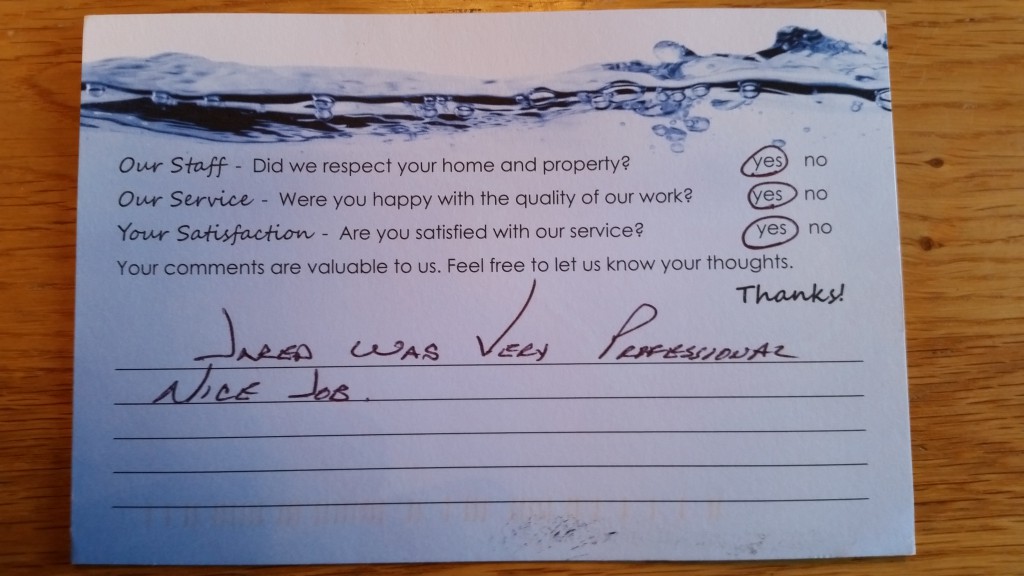 Our Staff - Did we respect your home and property? yes no
Our Service - Were you happy with the quality of our work? yes no
Your Satisfaction - Are you satisfied with our service? yes no
Your comments are valuable to us. Feel free to let us know your thoughts.
Thanks!
JARED WAS VERY PROFESSIONAL
NICE JOB.